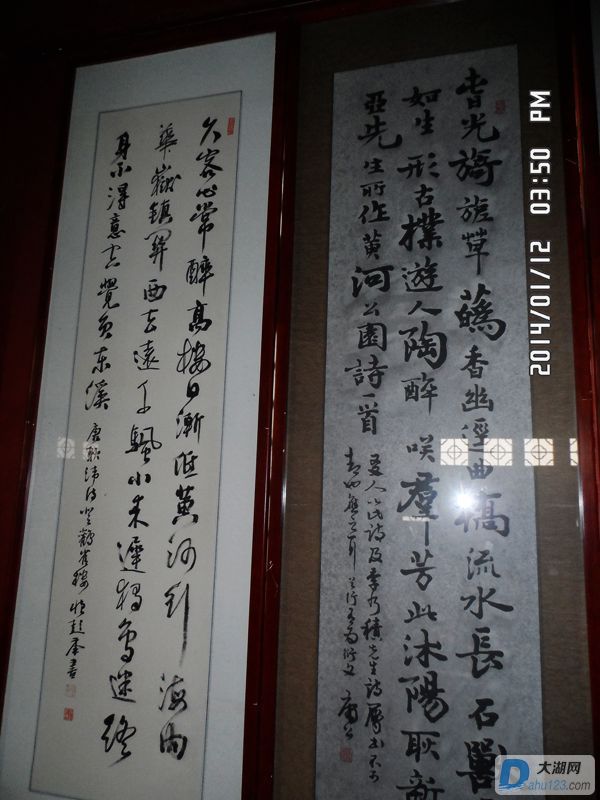 春光旖旎草香幽逕曲橋流水長石獸
如生形古樸遊人陶醉咲羣芳此沐陽耿新
亞先生所作黃河公園詩一首
久客心常醉高樓日漸低黃河到海內
華嶽鎮關西去遠千颿小來遲獨鳥迷終
身不得意空覺負東溪 唐耿湋詩登鸛雀樓 書
2014/01/12 03:50 PM
大湖网
Dahu123.com